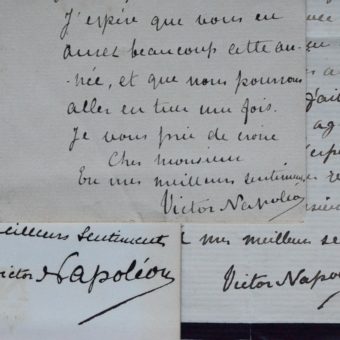 J'espère que vous en
aurez beaucoup cette an-
-née, et que nous pourrons
aller en tuer une fois.
Je vous prie de croire
Cher monsieur
En mes meilleurs sentiments
Victor Napoléon
eilleurs Sentiments
ictor Napoléon
mes meilleurs se
Victor Napo
j'ai